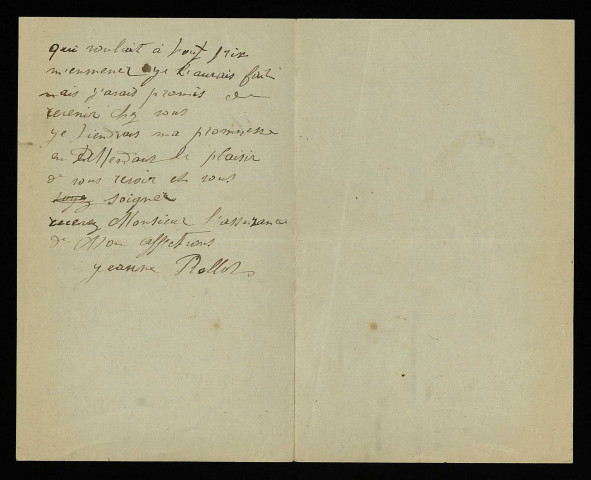 qui voulait à tout prix
m'enmener je l'aurais fait
mais j'avait promis de
revenir chez vous
je tiendrais ma promesse
en attendant le plaisir
de vous revoir et vous
soigner
recevez Monsieur l'assurance
de Mon affections
jeanne